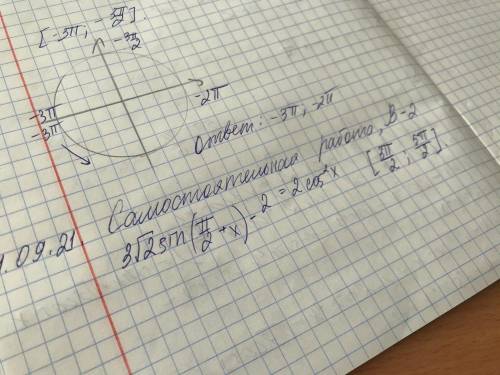 [-3π, -3π/2].
-3π/2
-2π
-3π
-3π
Ответ: -3π, -2π
.09.21. Самостоятельная работа, В-2
3√2 sin(π/2 + x) - 2 = 2cos²x [3π/2, 5π/2].